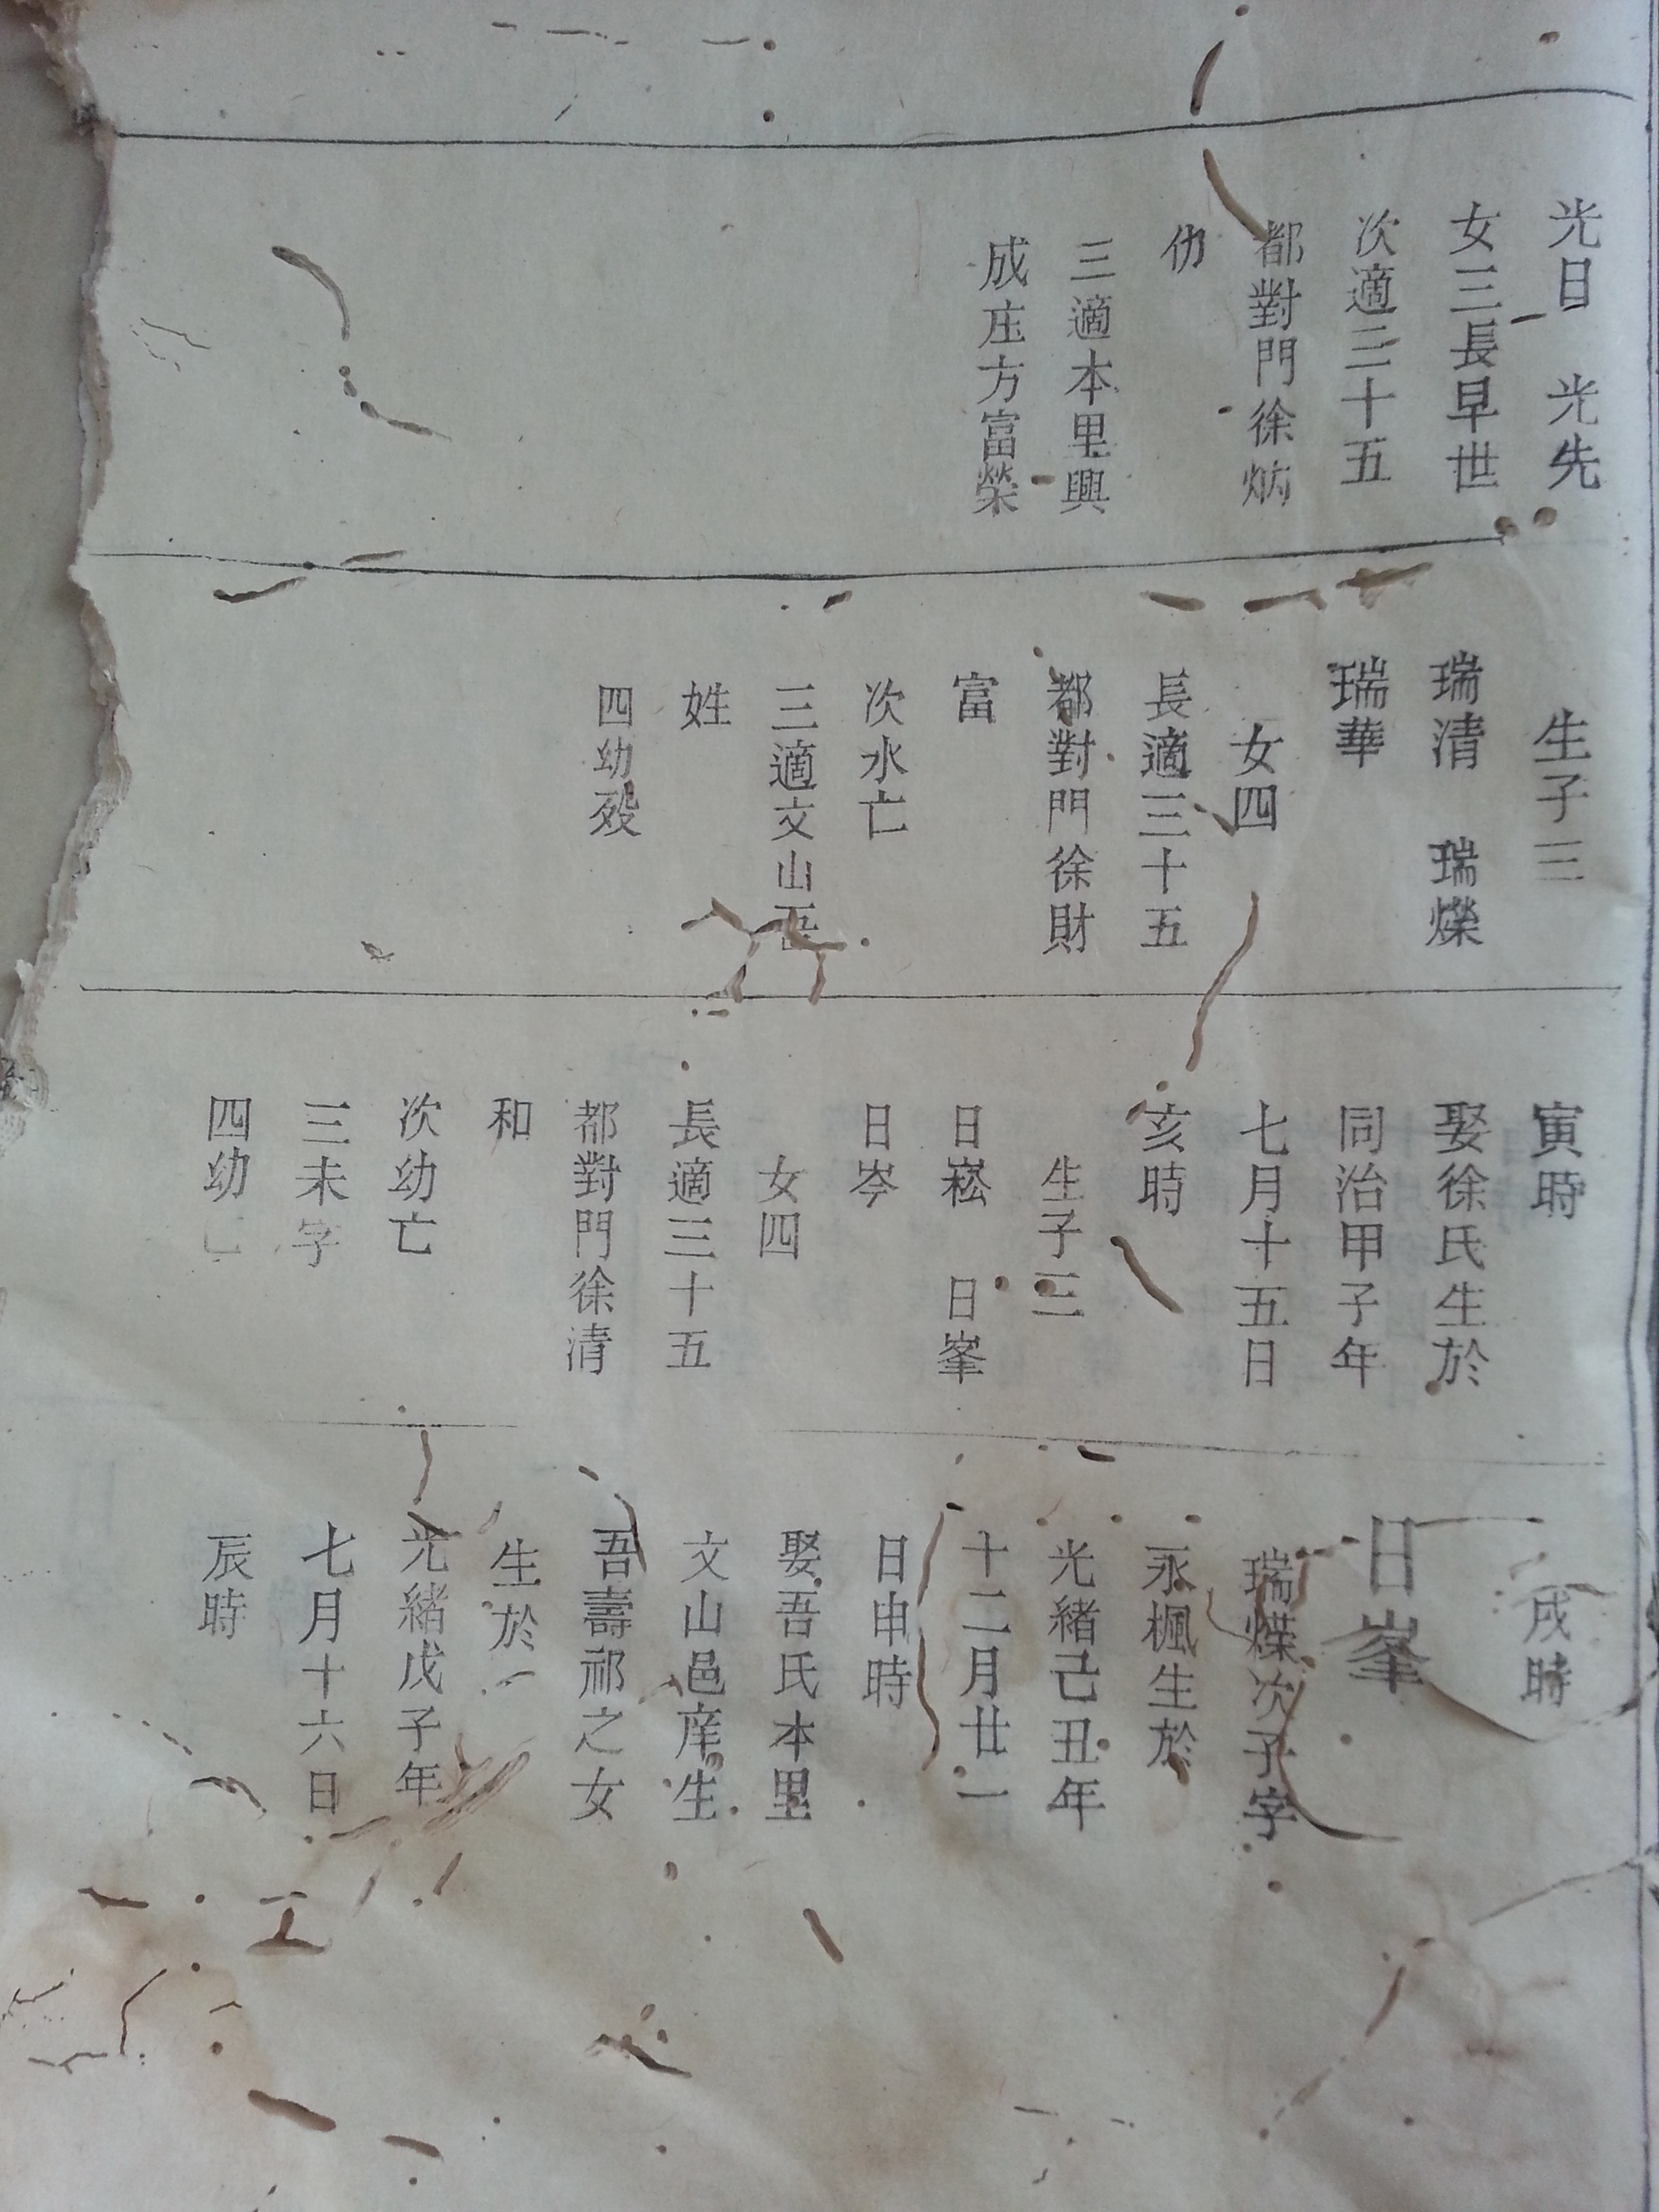 光日 光先
女三長早世
次適三十五
都對門徐炳
仂
三適本里興
成庄方富榮
生子三
瑞清 瑞爍
瑞華
女四
長適三十五
都對門徐財
富
次水亡
三適文山吾
姓
四幼殁
寅時
娶徐氏生於
同治甲子年
七月十五日
亥時
生子三
日崧 日峯
日岑
女四
長適三十五
都對門徐清
和
次幼亡
三未字
四幼亡
戌時
日峯
瑞爍次子字
永楓生於
光緒己丑年
十二月廿一
日申時
娶吾氏本里
文山邑庠生
吾壽祁之女
生於
光緒戊子年
七月十六日
辰時